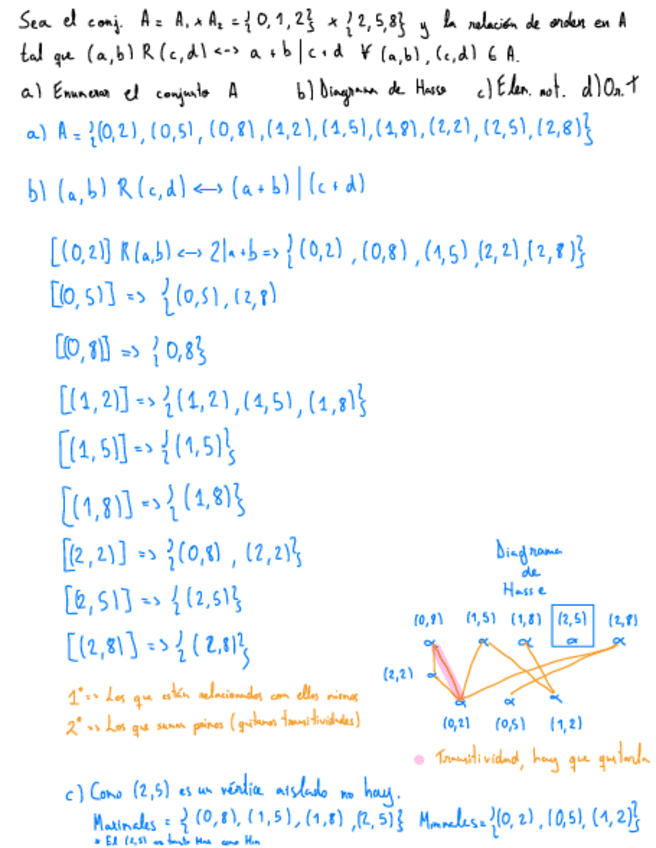 Sea el conj. A = A₁ x A₂ = {0, 1, 2} x {2, 5, 8} y la relación de orden en A
tal que (a,b) R (c,d) <-> a + b | c + d ∀ (a,b), (c,d) ∈ A.
a) Enumerar el conjunto A b) Diagrama de Hasse c) Elem. not. d) Or. T
a) A = {(0,2), (0,5), (0,8), (1,2), (1,5), (1,8), (2,2), (2,5), (2,8)}
b) (a,b) R (c,d) <-> (a+b) | (c+d)
[(0,2)] R(a,b) <-> 2|a+b => {(0,2), (0,8), (1,5), (2,2), (2,8)}
[(0,5)] => {(0,5), (2,8)
[(0,8)] => {0,8}
[(1,2)] => {(1,2), (1,5), (1,8)}
[(1,5)] => {(1,5)}
[(1,8)] => {(1,8)}
[(2,2)] => {(0,8), (2,2)}
[(2,5)] => {(2,5)}
[(2,8)] => {(2,8)}
Diagrama
de
Hasse
(0,8) (1,5) (1,8) (2,5) (2,8)
(2,2)
(0,2) (0,5) (1,2)
1º => Los que están relacionados con ellos mismos
2º => Los que suman primos (quitamos transitividades)
Transitividad, hay que quitarla
c) Como (2,5) es un vértice aislado no hay.
Maximales = {(0,8), (1,5), (1,8), (2,5)} Minimales = {(0,2), (0,5), (1,2)}
* El (2,5) es tanto Max como Min